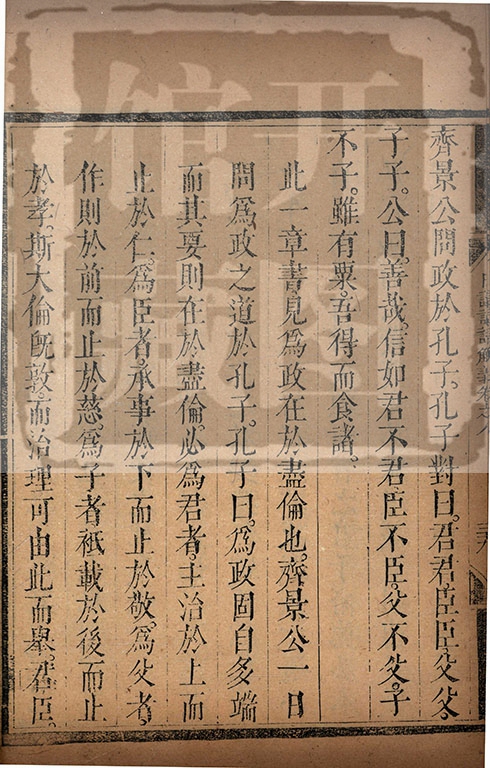 齊景公問政於孔子。孔子對曰。君君臣臣。父父。
子子。公曰。善哉。信如君不君。臣不臣。父不父。子
不子。雖有粟。吾得而食諸。
此一章書。見為政在於盡倫也。齊景公一日
問為政之道於孔子。孔子曰。為政固自多端
而其要則在於盡倫。必為君者。主治於上而
止於仁。為臣者。承事於下而止於敬。為父者。
作則於前而止於慈。為子者。祗載於後而止
於孝。斯大倫旣敦。而治理可由此而舉。君臣。